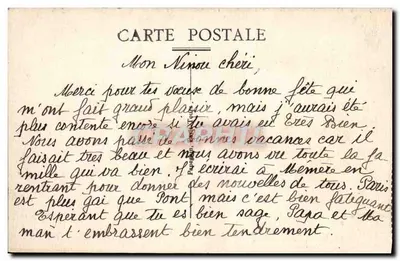 CARTE POSTALE
Mon Ninou chéri,
Merci pour tes vœux de bonne fête qui
m'ont fait grand plaisir, mais j'aurais été
plus contente encore si tu avais eu Très Bien.
Nous avons passé de bonnes vacances car il
faisait très beau et nous avons vu toute la fa
mille qui va bien. J'écrirai à Mémère en
rentrant pour donner des nouvelles de tous. Paris
est plus gai que Pont, mais c'est bien fatiguant
Espérant que tu es bien sage, Papa et Ma
man t'embrassent bien tendrement.